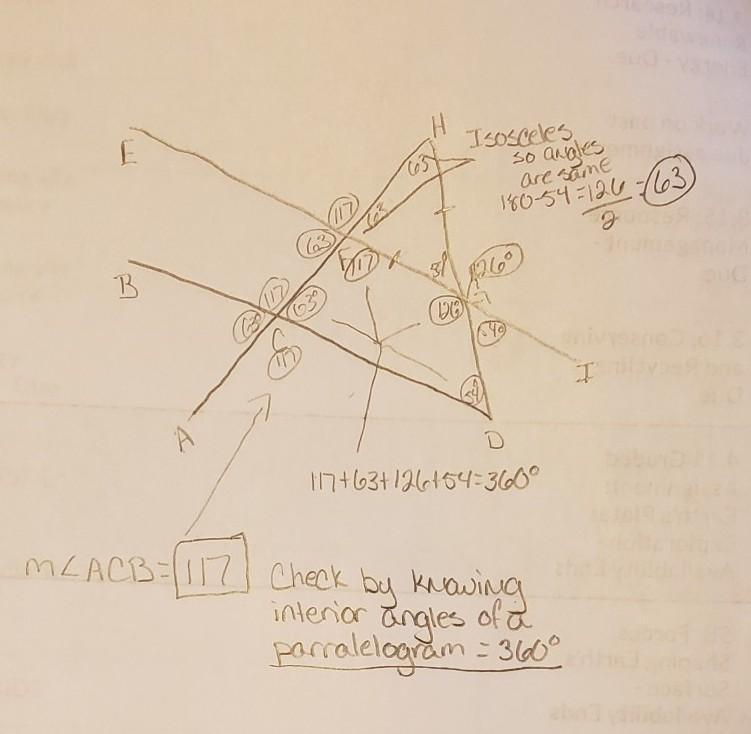 H
E
Isosceles
so angles
are same
180-54=126=63
2
65
117
63
63
F
117
54
126°
B
117
63°
63
126
54°
C
117
54
I
A
D
117+63+126+54=360°
m∠ACB=117
Check by knowing
interior angles of a
parralelogram = 360°